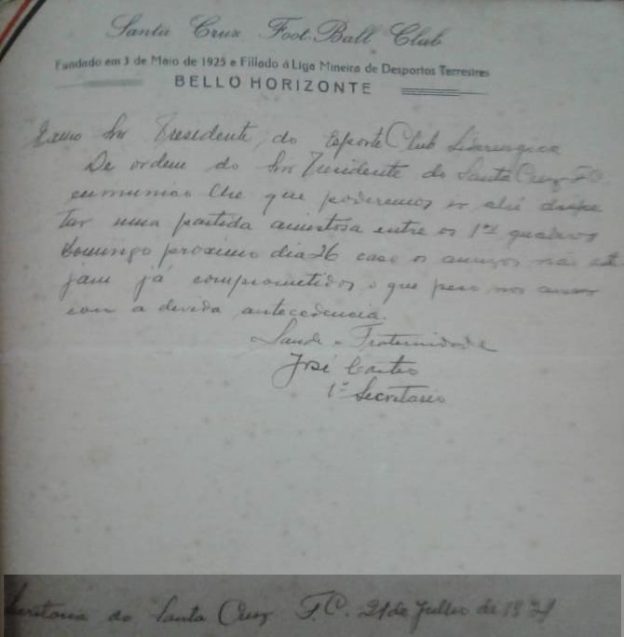 Santa Cruz Foot-Ball Club
Fundado em 3 de Maio de 1925 e Filiado á Liga Mineira de Desportos Terrestres
BELLO HORIZONTE
Exmo Snr Presidente, do Esporte Club
De ordem do Snr Presidente do Santa Cruz F.C.
communico lhe que poderemos ir ahi dispu
tar uma partida amistosa entre os 1os quadros
Domingo proximo dia 26 caso os amigos não este
jam já comprometidos o que peço nos
com a devida antecedencia.
Saude e Fraternidade
José Castro
1º Secretario
Secretaria do Santa Cruz F.C. 21 de Julho de